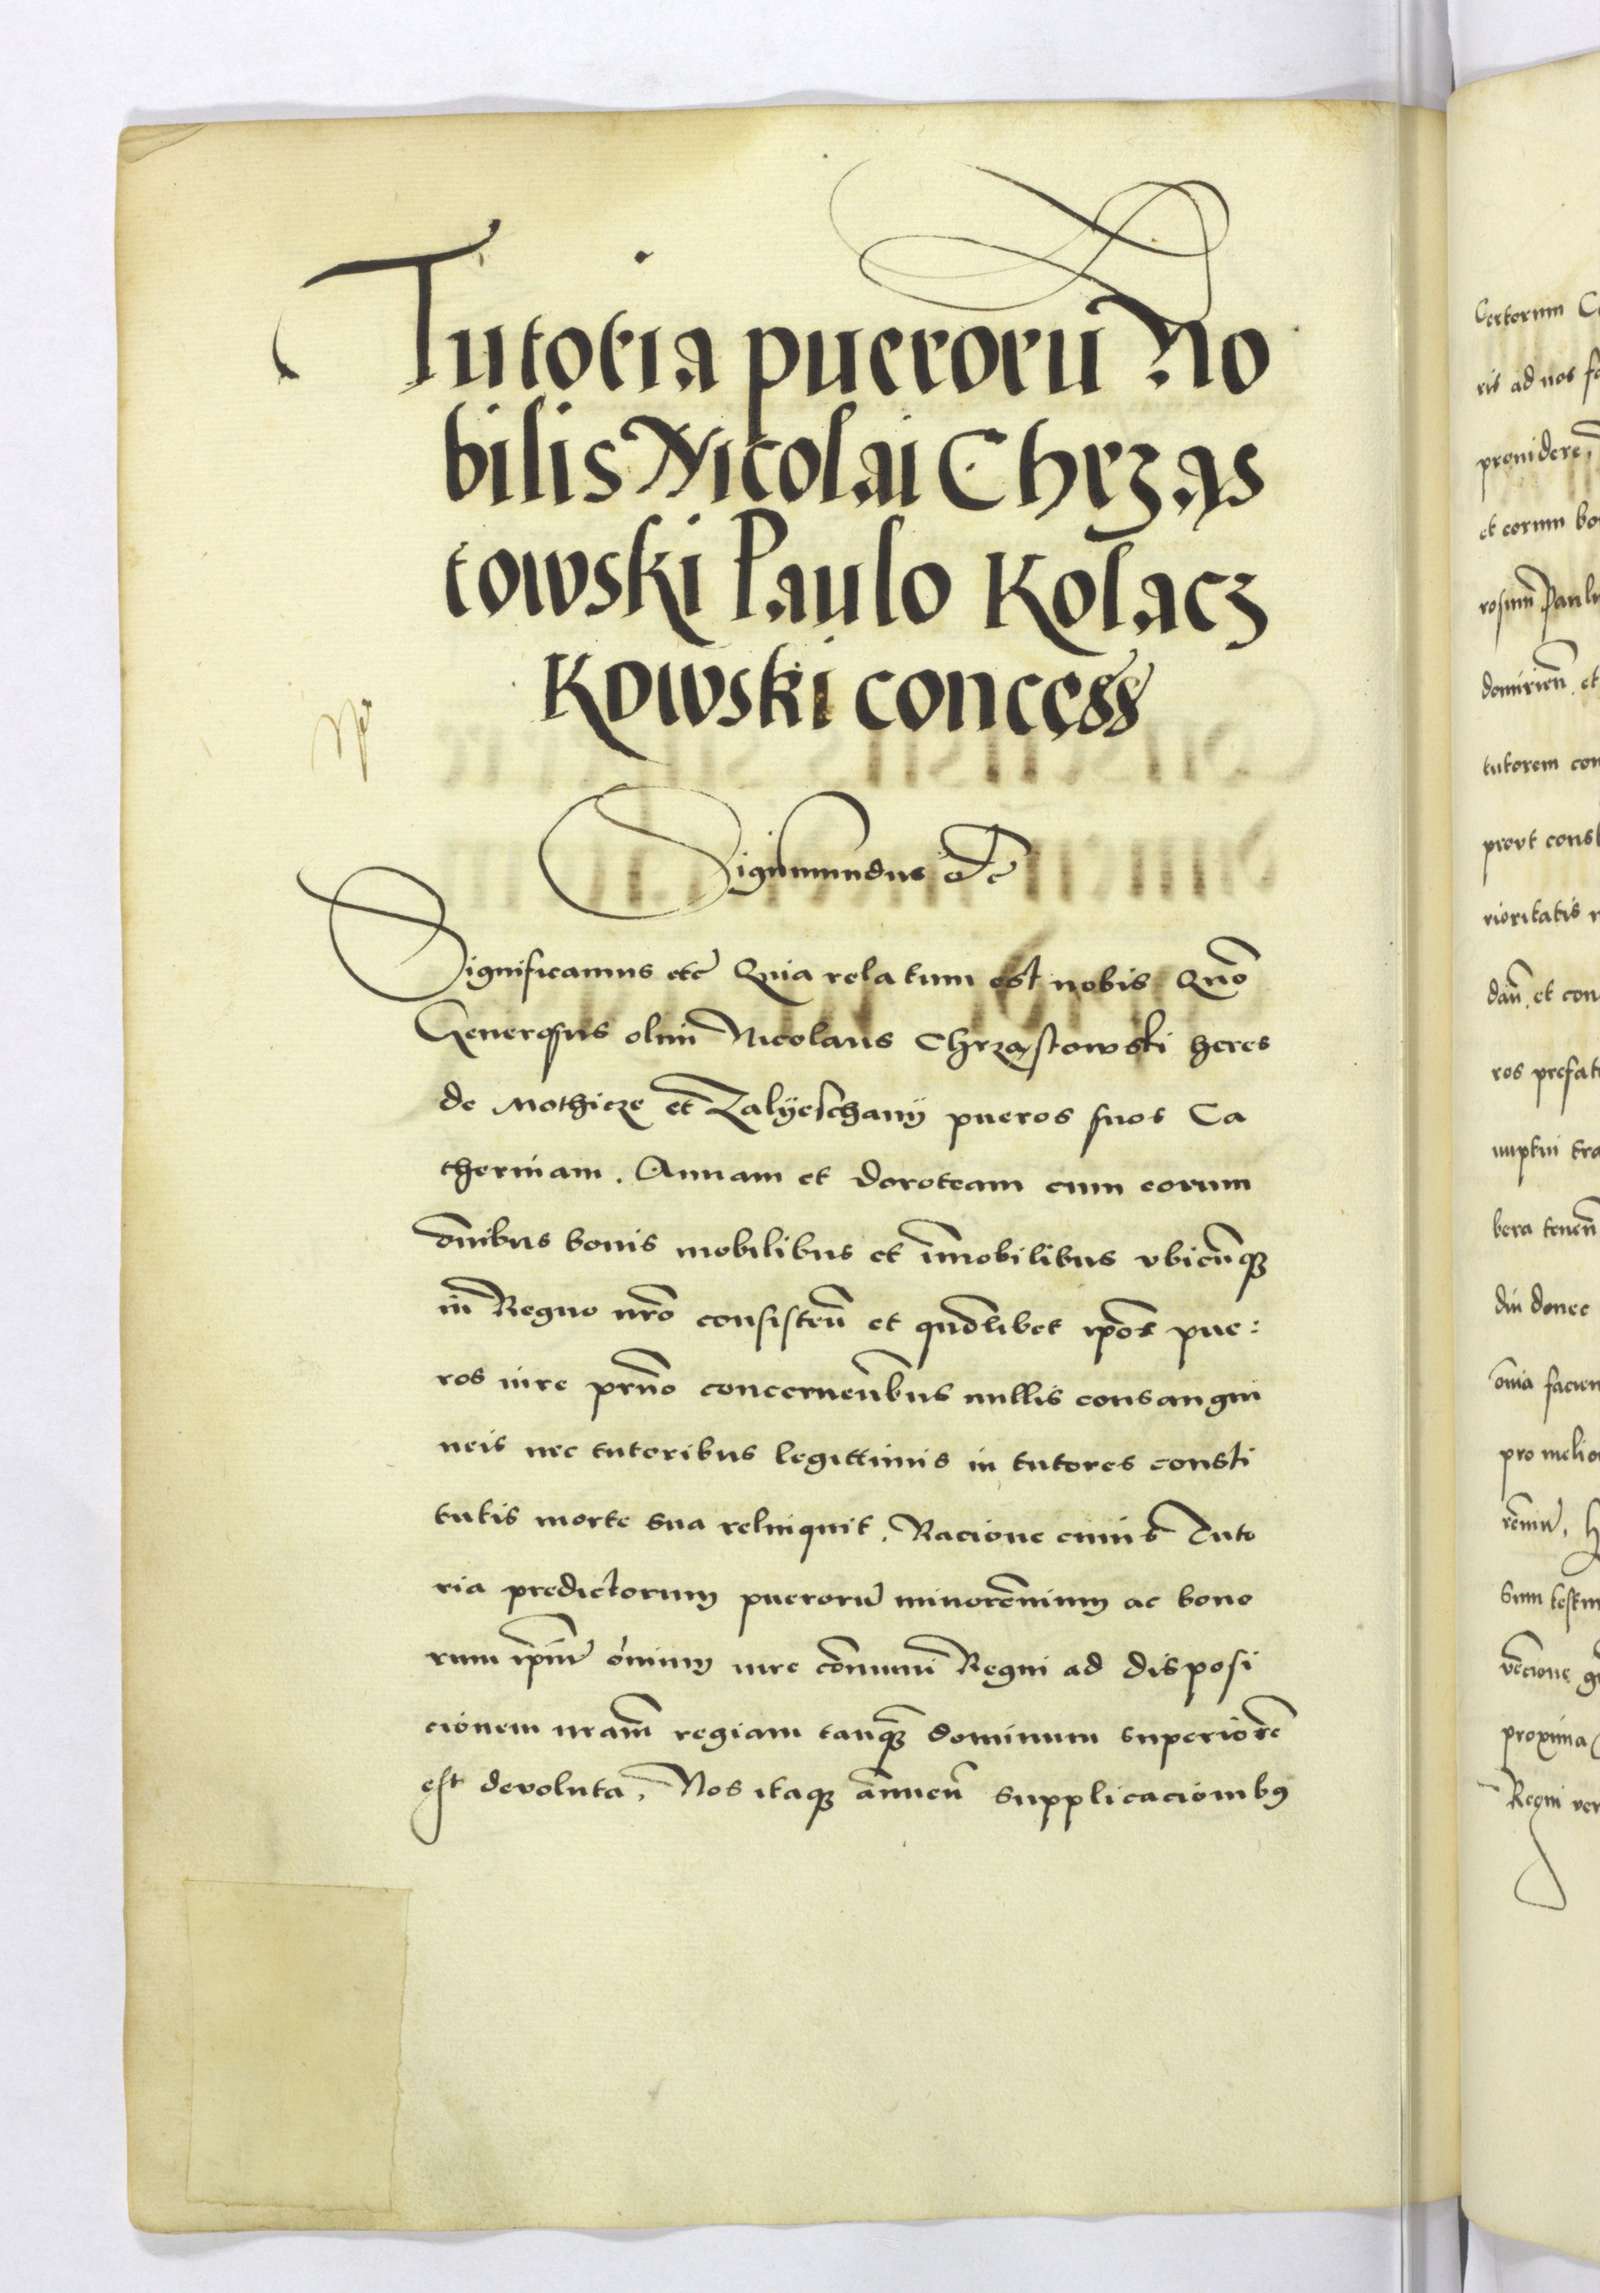 Tutoria pueroru̅ No
bilis Nicolai Chrząs
towski Paulo Kolacz
kowski concess
Sigismundus etc
Significamus etc Quia relatum est nobis Quo̅
Generosus olim Nicolaus Chrząstowski heres
de Mothicze et Zalyeschany pueros suos Ca
therinam. Annam et Doroteam cum eorum
o̅nibus bonis mobilibus et i̅mobilibus vbicu̅q3
in Regno nr̅o consisten̅ et quo̅dlibet ip̅os pue:
ros iure pr̅no concernen̅bus nullis consangui
neis nec tutoribus legittimis in tutores consti
tutis morte sua reliquit. Racione cuius Tuto
ria predictorum pueroru̅ minore̅nium ac bono
rum ip̅or̅ o̅nium iure co̅muni Regni ad disposi
cionem nr̅am regiam tanq3 dominum superiore̅
est devoluta. Nos itaq3 a̅nuen̅ supplicacionib9
Certorum
ris ad nos
prouidere,
et eorum
rosum̅
domirien̅. et
tutorem
prout
rioritatis
dan̅. et
ros
nuptui
bera tenen̅
diu donec
o̅nia
pro
Sum
proxima
Regni